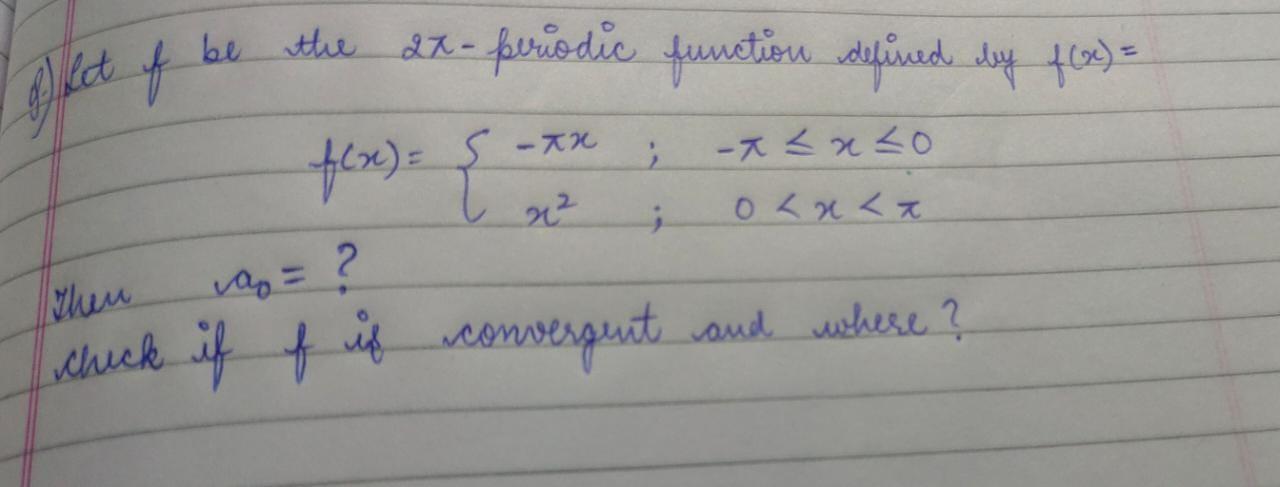 Q.) Let f be the 2π-periodic function defined by f(x)=
f(x)= { -πx ; -π ≤ x ≤ 0
x² ; 0 < x < π
Then a₀ = ?
check if f is convergent and where?